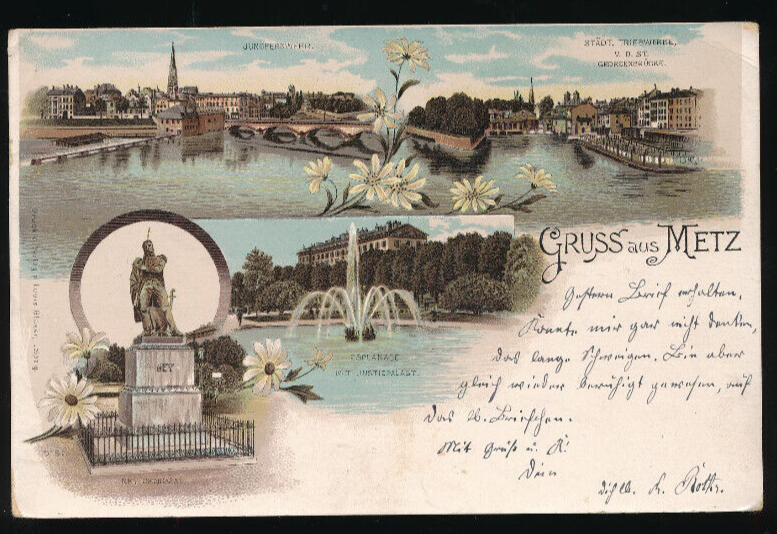 JUNGFERNWEHR.
STÄDT. TRIEBWERKE,
V. D. ST.
GEORGENBRÜCKE.
GRUSS aus METZ
Gestern Brief erhalten.
Konnte mir gar nicht denken,
das lange Schweigen. Bin aber
gleich wieder beruhigt gewesen, auf
das l. Briefchen.
Mit Gruß u. K!
Dein
dich l.
NEY
ESPLANADE
MIT JUSTIZPALAST.
NEY DENKMAL.